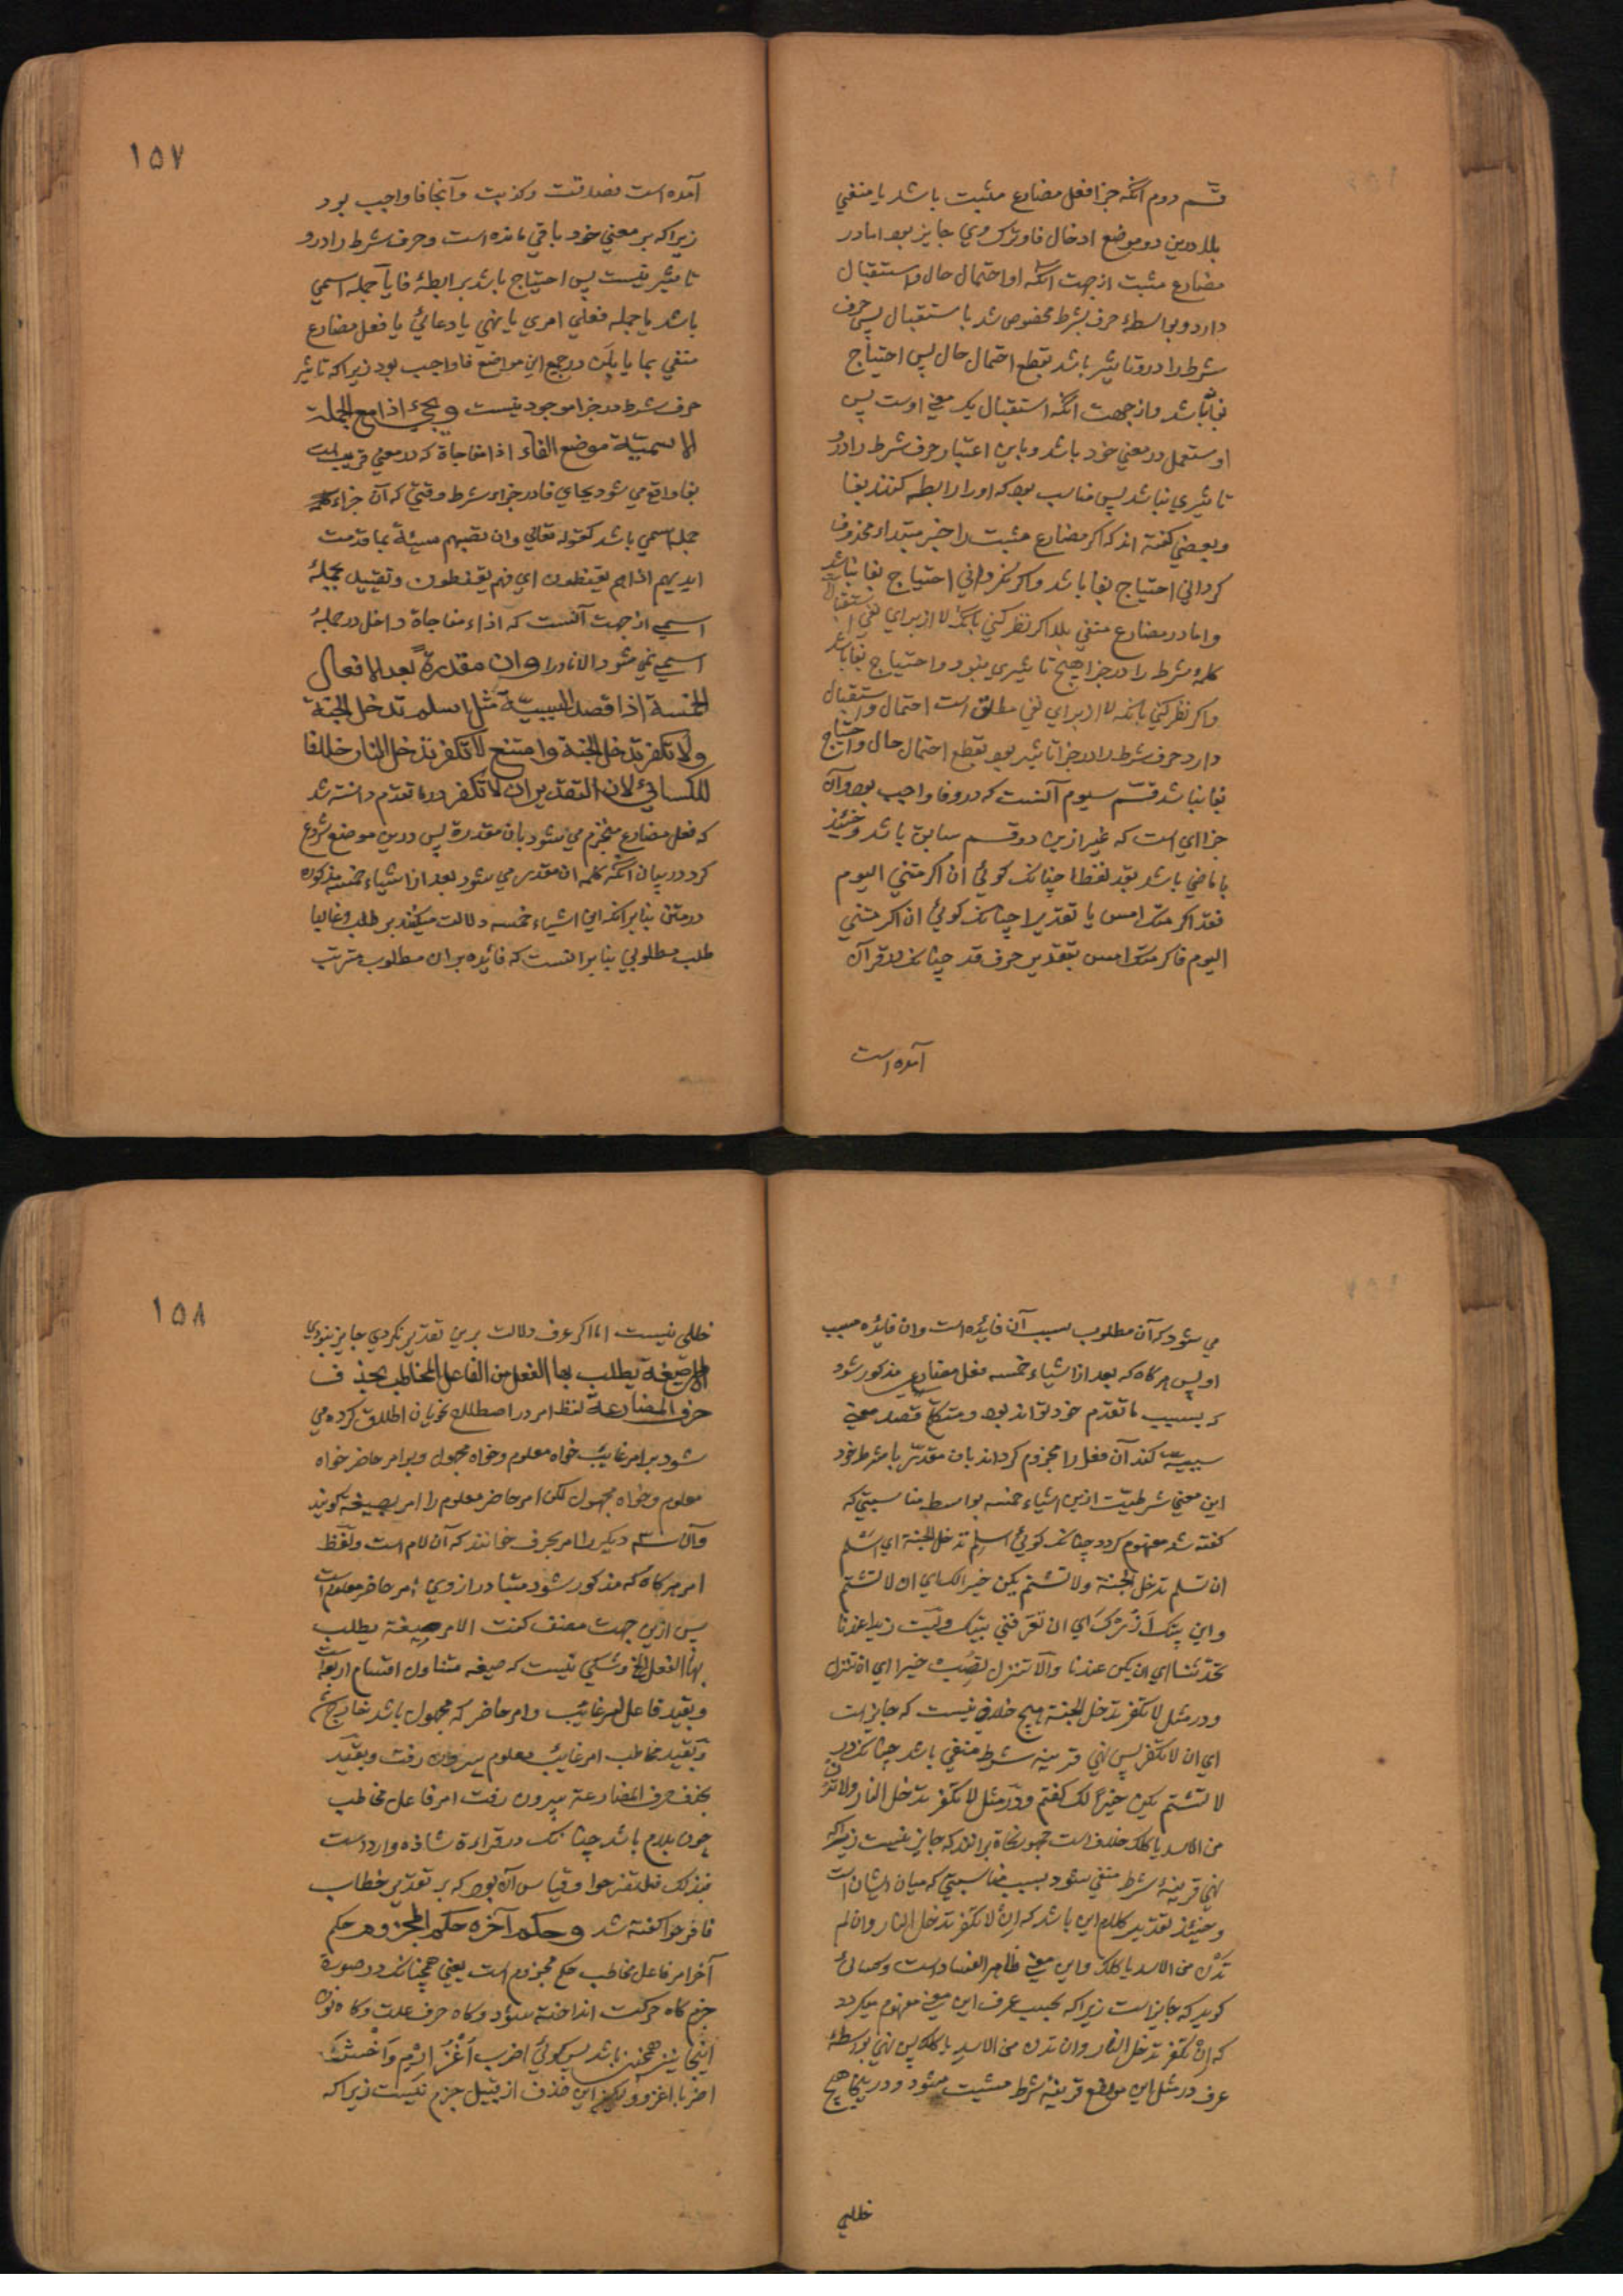 قسم دوم آنکه جزا فعل مضارع مثبت باشد یا منفی
بلا درین دو موضع ادخال فا و ترک وی جایز بود اما در
مضارع مثبت از جهت آنکه او احتمال حال و استقبال
دارد و بواسطهٔ حرف شرط مخصوص شد باستقبال پس حرف
شرط را درو تاثیر باشد بقطع احتمال حال پس احتیاج
بفا نباشد و از جهت آنکه استقبال یک معنی اوست پس
او مستعمل در معنی خود باشد و باین اعتبار حرف شرط را درو
تاثیری نباشد پس مناسب بود که او را رابطه کنند بفا
و بعضی گفته اند که اگر مضارع مثبت را خبر مبتداء محذوف
گردانی احتیاج بفا باشد و اگر نگردانی احتیاج بفا نباشد
و اما در مضارع منفی بلا اگر نظر کنی بآنکه لا از برای نفی استقبال
کلمهٔ شرط را در جزا هیچ تاثیری نبود و احتیاج بفا باشد
و اگر نظر کنی بآنکه لا از برای نفی مطلق است احتمال و استقبال
دارد حرف شرط را در جزا تاثیر بود بقطع احتمال حال و احتیاج
بفا نباشد قسم سیوم آنست که درو فا واجب بود و آن
جزاای است که غیر ازین دو قسم سابق باشد و حینئذ
یا ماضی باشد بقد لفظا چنانک گوئی ان اکرمتنی الیوم
فقد اکرمتک امس یا تقدیرا چنانک گوئی ان اکرمتنی
الیوم فاکرمتک امس بتقدیر حرف قد چنانک در قرآن
آمده است
۱۵۷
آمده است فصدقت و کذبت و آنجا فا واجب بود
زیرا که بر معنی خود باقی مانده است و حرف شرط را درو
تاثیر نیست پس احتیاج باشد برابطهٔ فا یا جمله اسمی
باشد یا جمله فعلی امری یا نهی یا دعائی یا فعل مضارع
منفی بما یا بلن در جمیع این مواضع فا واجب بود زیرا که تاثیر
حرف شرط در جزا موجود نیست ویجئ اذا مع الجملة
الاسمیّة موضع الفاء اذا مفاجاة که در معنی قریب است
بفا واقع می شود بجای فا در جزاء شرط وقتی که آن جزاء
جمله اسمی باشد کقوله تعالی وان تصبهم سیئة بما قدمت
ایدیهم اذا هم یقنطون ای فهم یقنطون و تقیید بجملهٔ
اسمی از جهت آنست که اذاء مفاجاة داخل در جملهٔ
اسمی نمی شود الا نادرا وان مقدرة بعد الافعال
الخمسة اذا قصد السببیّة مثل اسلم تدخل الجنة
ولا تکفر تدخل الجنة وامتنع لا تکفر تدخل النار خلافا
للکسائی لان التقدیر ان لا تکفر در ما تقدم دانسته شد
که فعل مضارع منجزم می شود بان مقدرة پس درین موضع شروع
کرد در بیان آنکه کلمه ان مقدر می شود بعد از اشیاء خمسه مذکوره
در متن بنابر انکه این اشیاء خمسه دلالت میکند بر طلب و غالبا
طلب مطلوبی بنابر انست که فائده بر ان مطلوب مترتب
می شود که آن مطلوب سبب آن فایده است و ان فایده مسبب
او پس هرگاه که بعد از اشیاء خمسه فعل مضارع مذکور شود
که بسبب ما تقدم خود تواند بود و متکلم قصد معنی
سببیّت کند آن فعل را مجزوم گرداند بان مقدّر با شرط خود
این معنی شرطیّت ازین اشیاء خمسه بواسطهٔ مناسبتی که
گفته شد مفهوم گردد چنانک گوئی اسلم تدخل الجنة ای اسلم
ان تسلم تدخل الجنة ولا تشتم یکن خیر الک ای ان لا تشتم
واین بیتک ازرک ای ان تعرفنی بیتک ولیت زیدا عندنا
تحدثنا ای ان یکن عندنا والا تنزل تصب خیرا ای ان تنزل
و در مثل لا تکفر تدخل الجنة هیچ خلافی نیست که جایز است
ای ان لا تکفر پس نهی قرینه شرط منفی باشد چنانک در
لا تشتم یکن خیرا لک گفتم و در مثل لا تکفر تدخل النار ولا تدن
من الاسد یاکلک خلاف است جمهور نحاة بر انند که جایز نیست زیرا که
نهی قرینهٔ شرط منفی شود بسبب مناسبتی که میان ایشان است
و حینئذ تقدیر کلام این باشد که ان لا تکفر تدخل النار وان لم
تدن من الاسد یاکلک و این معنی ظاهر الفساد است و کسائی
گوید که جایز است زیرا که بحسب عرف این معنی مفهوم میگردد
که ان تکفر تدخل النار وان تدن من الاسد یاکلک پس نهی بواسطهٔ
عرف در مثل این موضع قرینهٔ شرط مثبت میشود و درینجا هیچ
خللی
۱۵۸
خللی نیست اما اگر عرف دلالت برین تقدیر نکردی جایز نبودی
الامر صیغة یطلب بها الفعل من الفاعل المخاطب بحذف
حرف المضارعة لفظ امر در اصطلاح نحویان اطلاق کرده می
شود بر امر غایب خواه معلوم و خواه مجهول و بر امر حاضر خواه
معلوم و خواه مجهول لکن امر حاضر معلوم را امر بصیغه گویند
و آن سه دیگر را امر بحرف خوانند که آن لام است و لفظ
امر هرگاه که مذکور شود متبادر ازوی امر حاضر معلوم است
پس ازین جهت مصنف گفت الامر صیغة یطلب
بها الفعل الخ و شکی نیست که صیغه متناول اقسام اربعه است
و بقید فاعل امر غایب و امر حاضر که مجهول باشد خارج شد
و بقید مخاطب امر غایب معلوم بیرون رفت و بقید
بحذف حرف المضارعة بیرون رفت امر فاعل مخاطب
چون بلام باشد چنانک در قراءة شاذه وارد است
فبذلک فلتفرحوا و قیاس آن بود که بر تقدیر خطاب
فافرحوا گفته شد وحکم آخره حکم المجزوم حکم
آخر امر فاعل مخاطب حکم مجزوم است یعنی همچنانک در صورة
جزم گاه حرکت انداخته شود و گاه حرف علت و گاه نون
اینجا نیز همچنین باشد پس گوئی اضرب اغز ارم واخش
اضربا اغزوا ولیکن این حذف از قبیل جزم نیست زیرا که